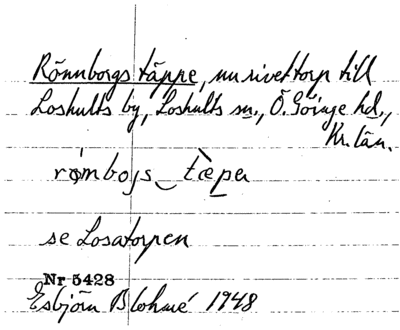 Rönnborgs täppe, nu rivet torp till
Loshults by, Loshults sn., Ö. Göinge hd.,
Kr. län.
se Losatorpen
Nr 5428
Esbjörn Blohmé 1948